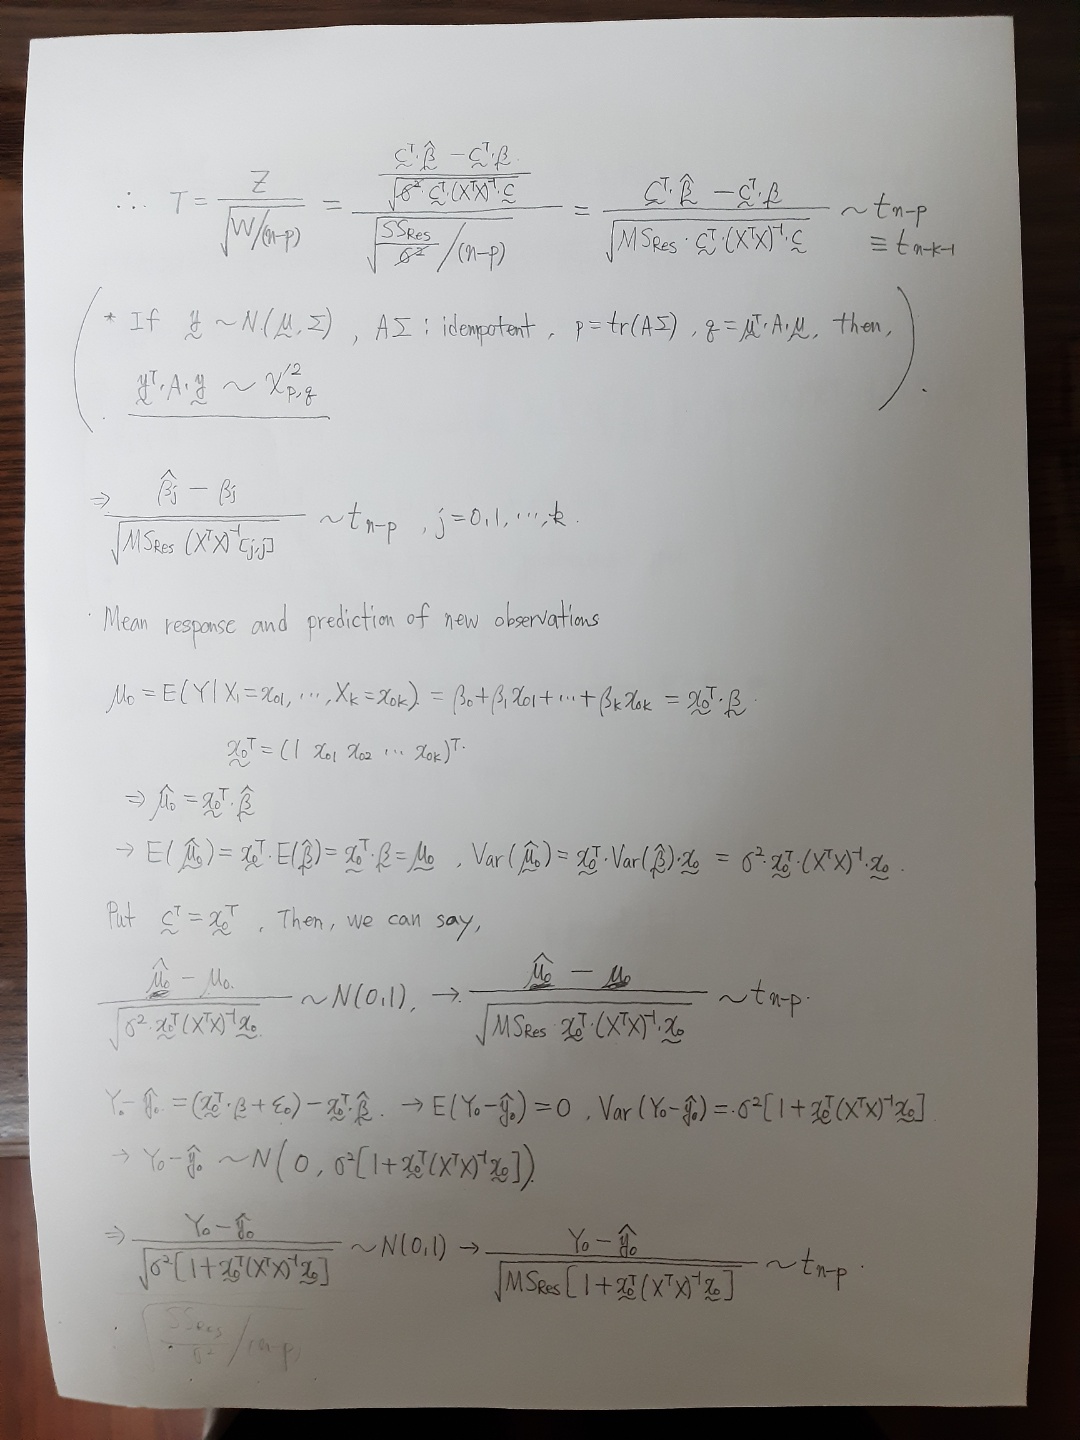 ∴ T = Z / √(W/(n-p)) = [(c̰ᵀ·β̰̂ - c̰ᵀ·β̰) / √(σ² c̰ᵀ·(XᵀX)⁻¹·c̰)] / √((SS_Res/σ²)/(n-p)) = (c̰ᵀ·β̰̂ - c̰ᵀ·β̰) / √(MS_Res · c̰ᵀ·(XᵀX)⁻¹·c̰) ~ t_{n-p}
≡ t_{n-k-1}
( * If y̰ ~ N(μ̰, Σ), AΣ : idempotent, p = tr(AΣ), q = μ̰ᵀ·A·μ̰, then,
y̰ᵀ·A·y̰ ~ χ'²_{p,q} ).
⇒ (β̂j - βj) / √(MS_Res (XᵀX)⁻¹[j,j]) ~ t_{n-p}, j=0,1,⋯,k.
· Mean response and prediction of new observations
μ₀ = E(Y|X₁=x₀₁, ⋯, X_k=x₀k) = β₀+β₁x₀₁+⋯+β_k x₀k = x̰₀ᵀ·β̰.
x̰₀ᵀ = (1 x₀₁ x₀₂ ⋯ x₀k)ᵀ.
⇒ μ̂₀ = x̰₀ᵀ·β̰̂
→ E(μ̰̂₀) = x̰₀ᵀ·E(β̰̂) = x̰₀ᵀ·β̰ = μ̰₀, Var(μ̰̂₀) = x̰₀ᵀ·Var(β̰̂)·x̰₀ = σ²·x̰₀ᵀ·(XᵀX)⁻¹·x̰₀.
Put c̰ᵀ = x̰₀ᵀ, Then, we can say,
(μ̂₀ - μ₀) / √(σ²·x̰₀ᵀ(XᵀX)⁻¹x̰₀) ~ N(0,1), → (μ̂₀ - μ₀) / √(MS_Res·x̰₀ᵀ·(XᵀX)⁻¹·x̰₀) ~ t_{n-p}.
Y₀-ŷ₀ = (x̰₀ᵀ·β̰+ε₀) - x̰₀ᵀ·β̰̂. → E(Y₀-ŷ₀) = 0, Var(Y₀-ŷ₀) = σ²[1+x̰₀ᵀ(XᵀX)⁻¹x̰₀]
→ Y₀-ŷ₀ ~ N(0, σ²[1+x̰₀ᵀ(XᵀX)⁻¹x̰₀])
⇒ (Y₀-ŷ₀) / √(σ²[1+x̰₀ᵀ(XᵀX)⁻¹x̰₀]) ~ N(0,1) → (Y₀-ŷ₀) / √(MS_Res[1+x̰₀ᵀ(XᵀX)⁻¹x̰₀]) ~ t_{n-p}.
√((SS_Res/σ²)/(n-p))